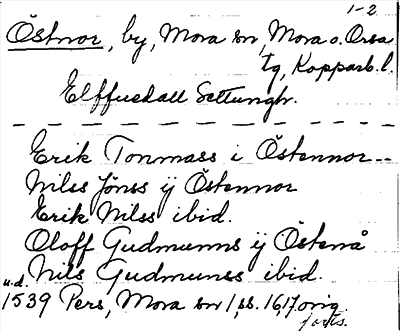 1-2
Östnor, by, Mora sn, Mora o. Orsa
tg, Kopparb. l.
Elffuedall Settungh.
Erik Tonmass i Östennor--
Nilss Jönss ij Östennor
Erik Nilss ibid.
Oloff Gudmunns ij Östenå
Nils Gudmunss ibid.
u.d.
1539 Pers, Mora sn 1, ss. 16, 17 orig.